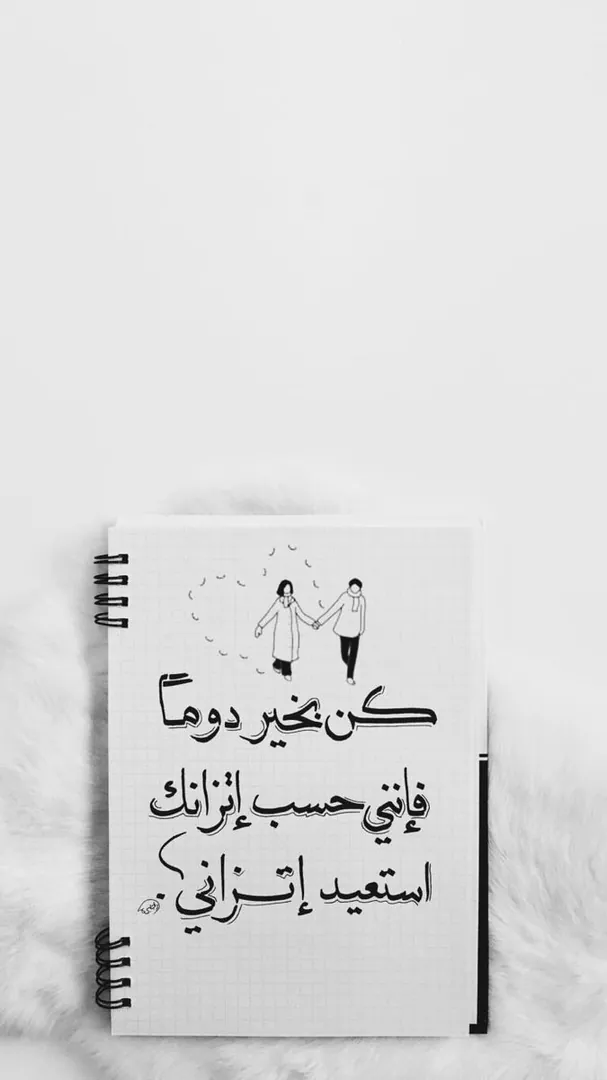 كن بخير دوماً
فإنني حسب إتزانك
استعيد إتـزاني.